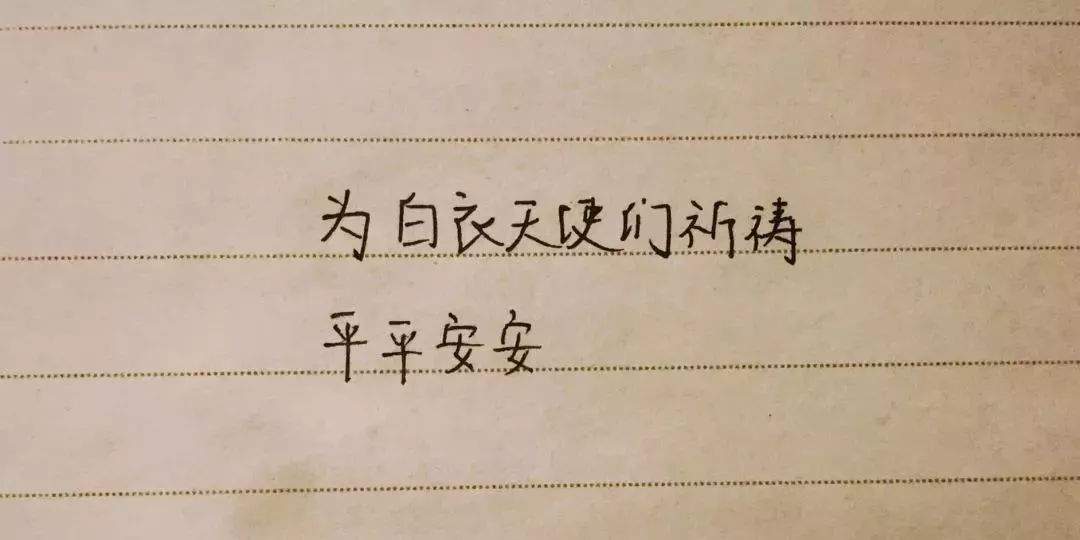 为白衣天使们祈祷
平平安安